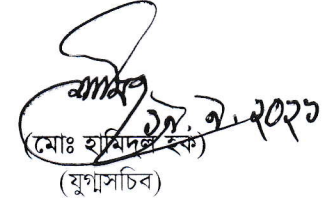 হামিদ ১৯.৯.২০২১
(মোঃ হামিদুল হক)
(যুগ্মসচিব)